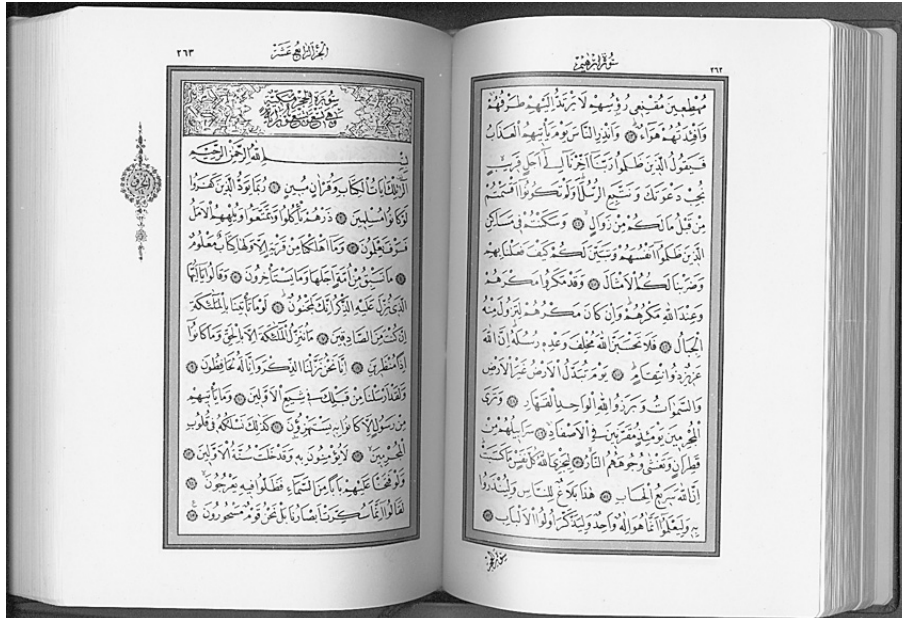 ٢٦٢
سُورَةُ اِبْرٰهِيمَ
مُهْطِعِينَ مُقْنِعِي رُؤُسِهِمْ لَا يَرْتَدُّ اِلَيْهِمْ طَرْفُهُمْ
وَاَفْـِٔدَتُهُمْ هَوَاءٌ ﴿٤٣﴾ وَاَنْذِرِ النَّاسَ يَوْمَ يَأْتِيهِمُ الْعَذَابُ
فَيَقُولُ الَّذِينَ ظَلَمُوا رَبَّنَا اَخِّرْنَا اِلٰى اَجَلٍ قَرِيبٍ
نُجِبْ دَعْوَتَكَ وَنَتَّبِعِ الرُّسُلَ اَوَلَمْ تَكُونُوا اَقْسَمْتُمْ
مِنْ قَبْلُ مَا لَكُمْ مِنْ زَوَالٍ ﴿٤٤﴾ وَسَكَنْتُمْ فِي مَسَاكِنِ
الَّذِينَ ظَلَمُوا اَنْفُسَهُمْ وَتَبَيَّنَ لَكُمْ كَيْفَ فَعَلْنَا بِهِمْ
وَضَرَبْنَا لَكُمُ الْاَمْثَالَ ﴿٤٥﴾ وَقَدْ مَكَرُوا مَكْرَهُمْ
وَعِنْدَ اللّٰهِ مَكْرُهُمْ وَاِنْ كَانَ مَكْرُهُمْ لِتَزُولَ مِنْهُ
الْجِبَالُ ﴿٤٦﴾ فَلَا تَحْسَبَنَّ اللّٰهَ مُخْلِفَ وَعْدِهِ رُسُلَهُ اِنَّ اللّٰهَ
عَزِيزٌ ذُو انْتِقَامٍ ﴿٤٧﴾ يَوْمَ تُبَدَّلُ الْاَرْضُ غَيْرَ الْاَرْضِ
وَالسَّمٰوَاتُ وَبَرَزُوا لِلّٰهِ الْوَاحِدِ الْقَهَّارِ ﴿٤٨﴾ وَتَرَى
الْمُجْرِمِينَ يَوْمَئِذٍ مُقَرَّنِينَ فِي الْاَصْفَادِ ﴿٤٩﴾ سَرَابِيلُهُمْ مِنْ
قَطِرَانٍ وَتَغْشٰى وُجُوهَهُمُ النَّارُ ﴿٥٠﴾ لِيَجْزِيَ اللّٰهُ كُلَّ نَفْسٍ مَا كَسَبَتْ
اِنَّ اللّٰهَ سَرِيعُ الْحِسَابِ ﴿٥١﴾ هٰذَا بَلَاغٌ لِلنَّاسِ وَلِيُنْذَرُوا
بِهِ وَلِيَعْلَمُوا اَنَّمَا هُوَ اِلٰهٌ وَاحِدٌ وَلِيَذَّكَّرَ اُولُوا الْاَلْبَابِ ﴿٥٢﴾
الْجُزْءُ الرَّابِعَ عَشَرَ
٢٦٣
سُورَةُ الْحِجْرِ مَكِّيَّةٌ
وَهِيَ تِسْعٌ وَتِسْعُونَ اٰيَةً
بِسْمِ اللّٰهِ الرَّحْمٰنِ الرَّحِيمِ
الٓرٰ تِلْكَ اٰيَاتُ الْكِتَابِ وَقُرْاٰنٍ مُبِينٍ ﴿١﴾ رُبَمَا يَوَدُّ الَّذِينَ كَفَرُوا
لَوْ كَانُوا مُسْلِمِينَ ﴿٢﴾ ذَرْهُمْ يَأْكُلُوا وَيَتَمَتَّعُوا وَيُلْهِهِمُ الْاَمَلُ
فَسَوْفَ يَعْلَمُونَ ﴿٣﴾ وَمَا اَهْلَكْنَا مِنْ قَرْيَةٍ اِلَّا وَلَهَا كِتَابٌ مَعْلُومٌ
﴿٤﴾ مَا تَسْبِقُ مِنْ اُمَّةٍ اَجَلَهَا وَمَا يَسْتَأْخِرُونَ ﴿٥﴾ وَقَالُوا يَا اَيُّهَا
الَّذِي نُزِّلَ عَلَيْهِ الذِّكْرُ اِنَّكَ لَمَجْنُونٌ ﴿٦﴾ لَوْ مَا تَأْتِينَا بِالْمَلٰئِكَةِ
اِنْ كُنْتَ مِنَ الصَّادِقِينَ ﴿٧﴾ مَا نُنَزِّلُ الْمَلٰئِكَةَ اِلَّا بِالْحَقِّ وَمَا كَانُوا
اِذًا مُنْظَرِينَ ﴿٨﴾ اِنَّا نَحْنُ نَزَّلْنَا الذِّكْرَ وَاِنَّا لَهُ لَحَافِظُونَ ﴿٩﴾
وَلَقَدْ اَرْسَلْنَا مِنْ قَبْلِكَ فِي شِيَعِ الْاَوَّلِينَ ﴿١٠﴾ وَمَا يَأْتِيهِمْ
مِنْ رَسُولٍ اِلَّا كَانُوا بِهِ يَسْتَهْزِؤُنَ ﴿١١﴾ كَذٰلِكَ نَسْلُكُهُ فِي قُلُوبِ
الْمُجْرِمِينَ ﴿١٢﴾ لَا يُؤْمِنُونَ بِهِ وَقَدْ خَلَتْ سُنَّةُ الْاَوَّلِينَ ﴿١٣﴾
وَلَوْ فَتَحْنَا عَلَيْهِمْ بَابًا مِنَ السَّمَاءِ فَظَلُّوا فِيهِ يَعْرُجُونَ ﴿١٤﴾
لَقَالُوا اِنَّمَا سُكِّرَتْ اَبْصَارُنَا بَلْ نَحْنُ قَوْمٌ مَسْحُورُونَ ﴿١٥﴾